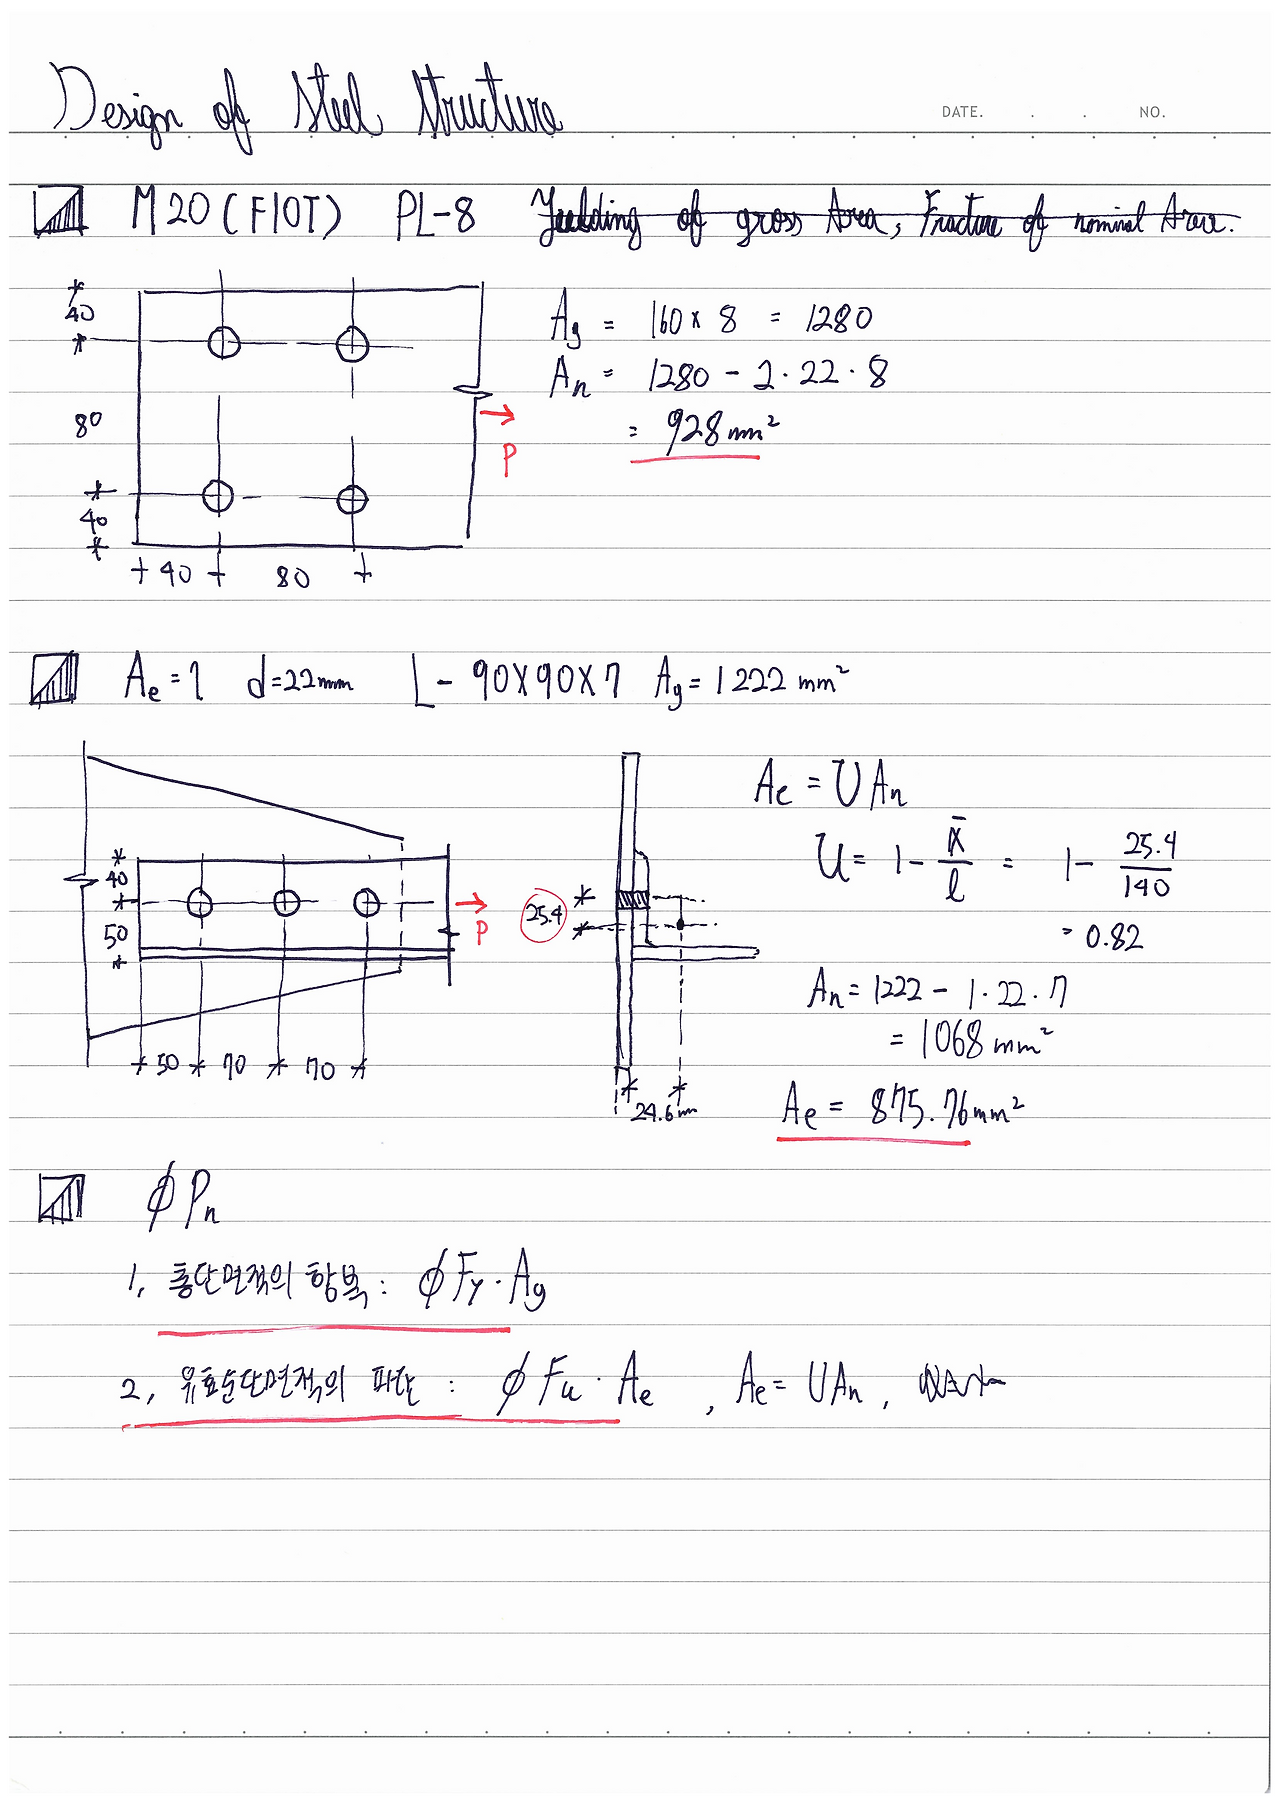 Design of Steel Structure
DATE. . . NO.
M20(F10T) PL-8 Yielding of gross Area, Fracture of nominal Area.
40
80
40
40 80
P
Ag = 160 × 8 = 1280
An = 1280 - 2·22·8
= 928mm²
Ae = ? d=22mm L - 90X90X7 Ag = 1222 mm²
40
50
50 70 70
P
25.4
24.6mm
Ae = UAn
U = 1 - x̄/l = 1 - 25.4/140
= 0.82
An = 1222 - 1·22·7
= 1068 mm²
Ae = 875.76mm²
ϕPn
1. 총단면적의 항복 : ϕFy·Ag
2. 유효순단면적의 파단 : ϕFu·Ae , Ae = UAn ,